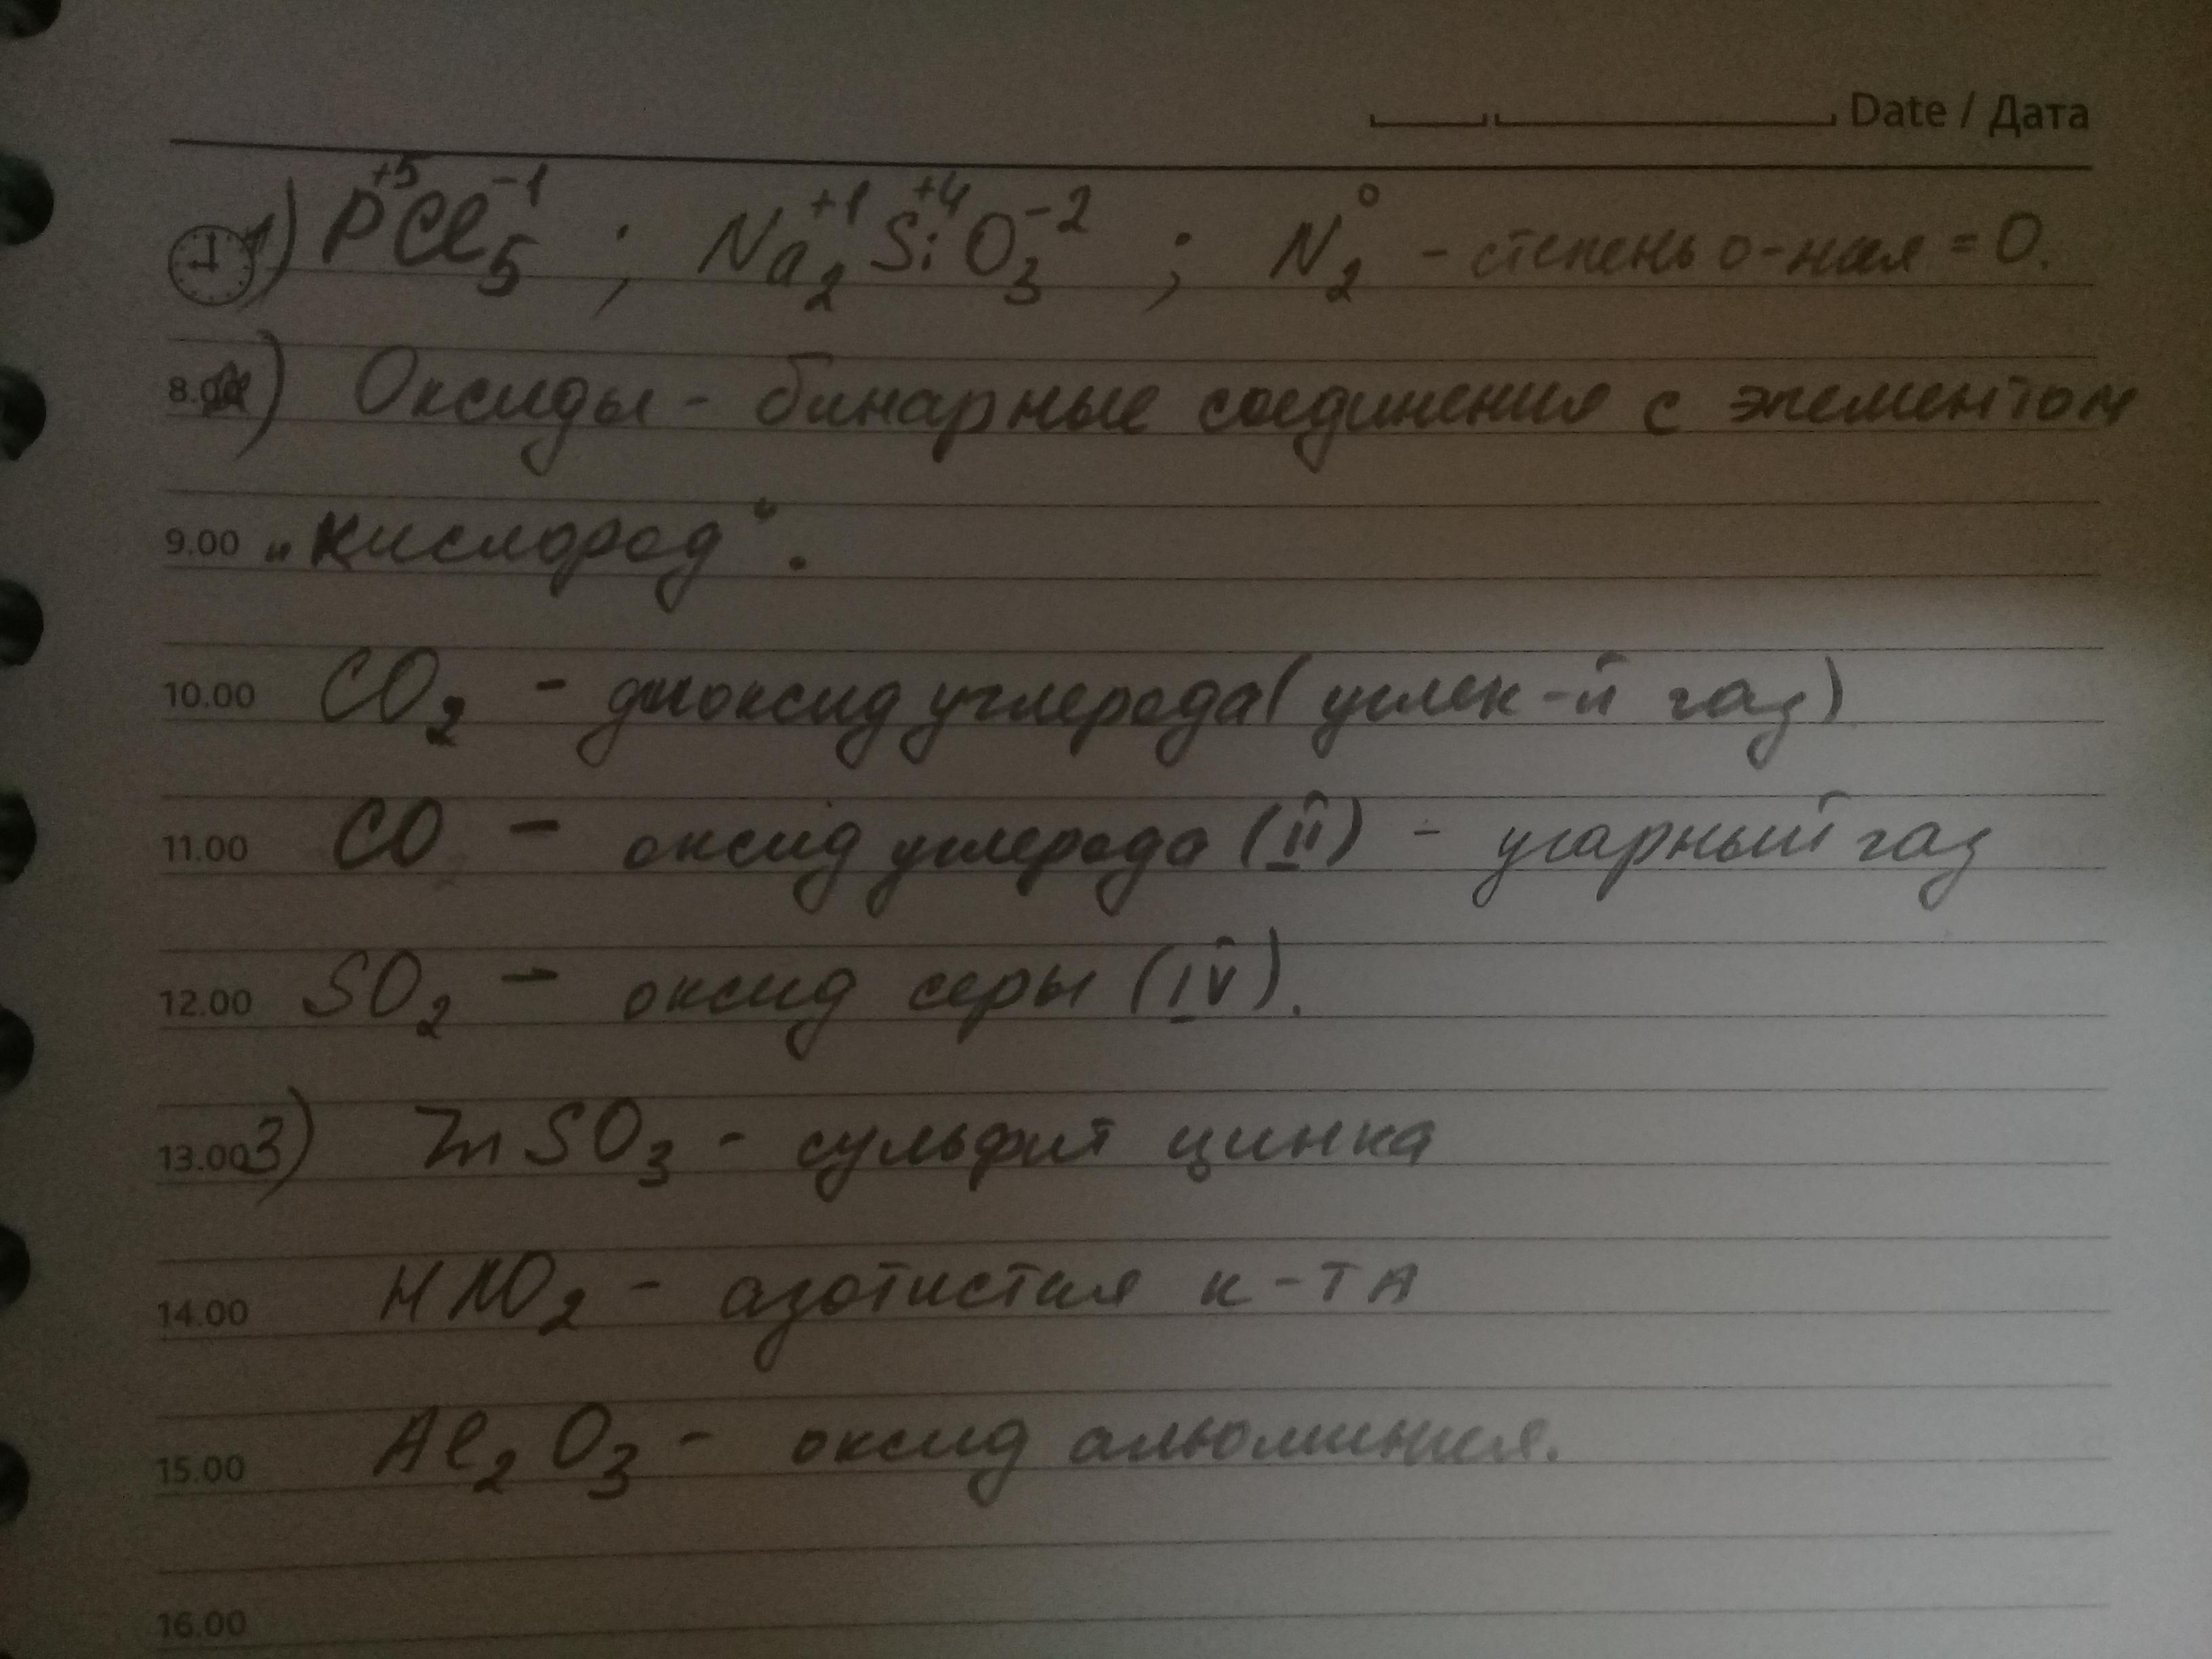 Date / Дата
1) P⁺⁵Cl₅⁻¹ ; Na₂⁺¹Si⁺⁴O₃⁻² ; N₂⁰ - степень о-ния = 0.
8.00 2) Оксиды - бинарные соединения с элементом
9.00 „Кислород“.
10.00 CO₂ - диоксид углерода (углек-й газ)
11.00 CO - оксид углерода (II) - угарный газ
12.00 SO₂ - оксид серы (IV).
13.00 3) ZnSO₃ - сульфит цинка
14.00 HNO₂ - азотистая к-та
15.00 Al₂O₃ - оксид алюминия.
16.00